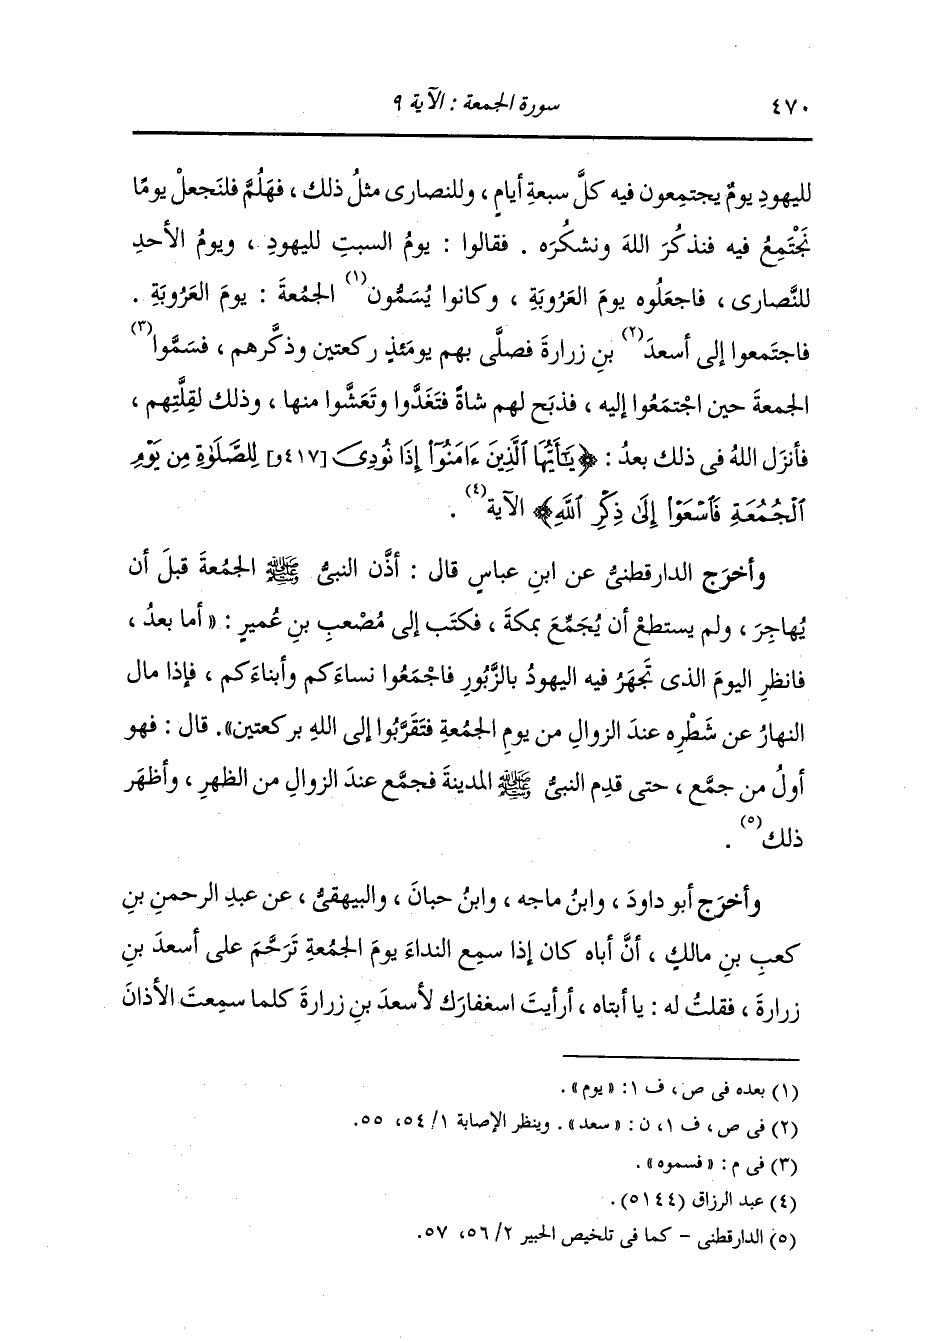 ٤٧٠
سورة الجمعة : الآية ٩
لليهودِ يومٌ يجتمِعون فيه كلَّ سبعةِ أيامٍ ، وللنصارى مثلُ ذلك ، فهَلُمَّ فلنَجعلْ يومًا
نَجْتَمِعُ فيه فنذكُرَ اللهَ ونشكُرَه . فقالوا : يومُ السبتِ لليهودِ ، ويومُ الأحدِ
للنَّصارى ، فاجعَلُوه يومَ العَرُوبَةِ ، وكانوا يُسَمُّون(١) الجمُعةَ : يومَ العَرُوبَةِ .
فاجتَمعوا إلى أسعدَ(٢) بنِ زرارةَ فصلَّى بهم يومَئذٍ ركعتين وذكَّرهم ، فسَمَّوا(٣)
الجمعةَ حين اجْتمَعُوا إليه ، فذبَح لهم شاةً فتَغَدَّوا وتَعَشَّوا منها ، وذلك لقِلَّتِهم ،
فأنزَل اللهُ فى ذلك بعدُ : ﴿يَٰٓأَيُّهَا ٱلَّذِينَ ءَامَنُوٓا۟ إِذَا نُودِىَ [٤١٧و] لِلصَّلَوٰةِ مِن يَوْمِ
ٱلْجُمُعَةِ فَٱسْعَوْا۟ إِلَىٰ ذِكْرِ ٱللَّهِ﴾ الآية(٤) .
وأخرَج الدارقطنىُّ عن ابنِ عباسٍ قال : أذَّن النبىُّ ﷺ الجمُعةَ قبلَ أن
يُهاجِرَ ، ولم يستطعْ أن يُجَمِّعَ بمكةَ ، فكتَب إلى مُصْعبِ بنِ عُميرٍ : « أما بعدُ ،
فانظرِ اليومَ الذى تَجْهَرُ فيه اليهودُ بالزَّبُورِ فاجْمَعُوا نساءَكم وأبناءَكم ، فإذا مال
النهارُ عن شَطْرِه عندَ الزوالِ من يومِ الجمُعةِ فتَقَرَّبُوا إلى اللهِ بركعتين» . قال : فهو
أولُ من جمَّع ، حتى قدِم النبىُّ ﷺ المدينةَ فجمَّع عندَ الزوالِ من الظهرِ ، وأظهَر
ذلك(٥) .
وأخرَج أبو داودَ ، وابنُ ماجه ، وابنُ حبانَ ، والبيهقىُّ ، عن عبدِ الرحمنِ بنِ
كعبِ بنِ مالكٍ ، أنَّ أباه كان إذا سمِع النداءَ يومَ الجمُعةِ تَرَحَّمَ على أسعدَ بنِ
زرارةَ ، فقلتُ له : يا أبتاه ، أرأيتَ اسغفارَك لأسعدَ بنِ زرارةَ كلما سمِعتَ الأذانَ
(١) بعده فى ص ، ف ١ : « يوم » .
(٢) فى ص ، ف ١، ن : « سعد » . وينظر الإصابة ١/ ٥٤، ٥٥.
(٣) فى م : « فسموه » .
(٤) عبد الرزاق (٥١٤٤) .
(٥) الدارقطنى - كما فى تلخيص الحبير ٢/ ٥٦، ٥٧.